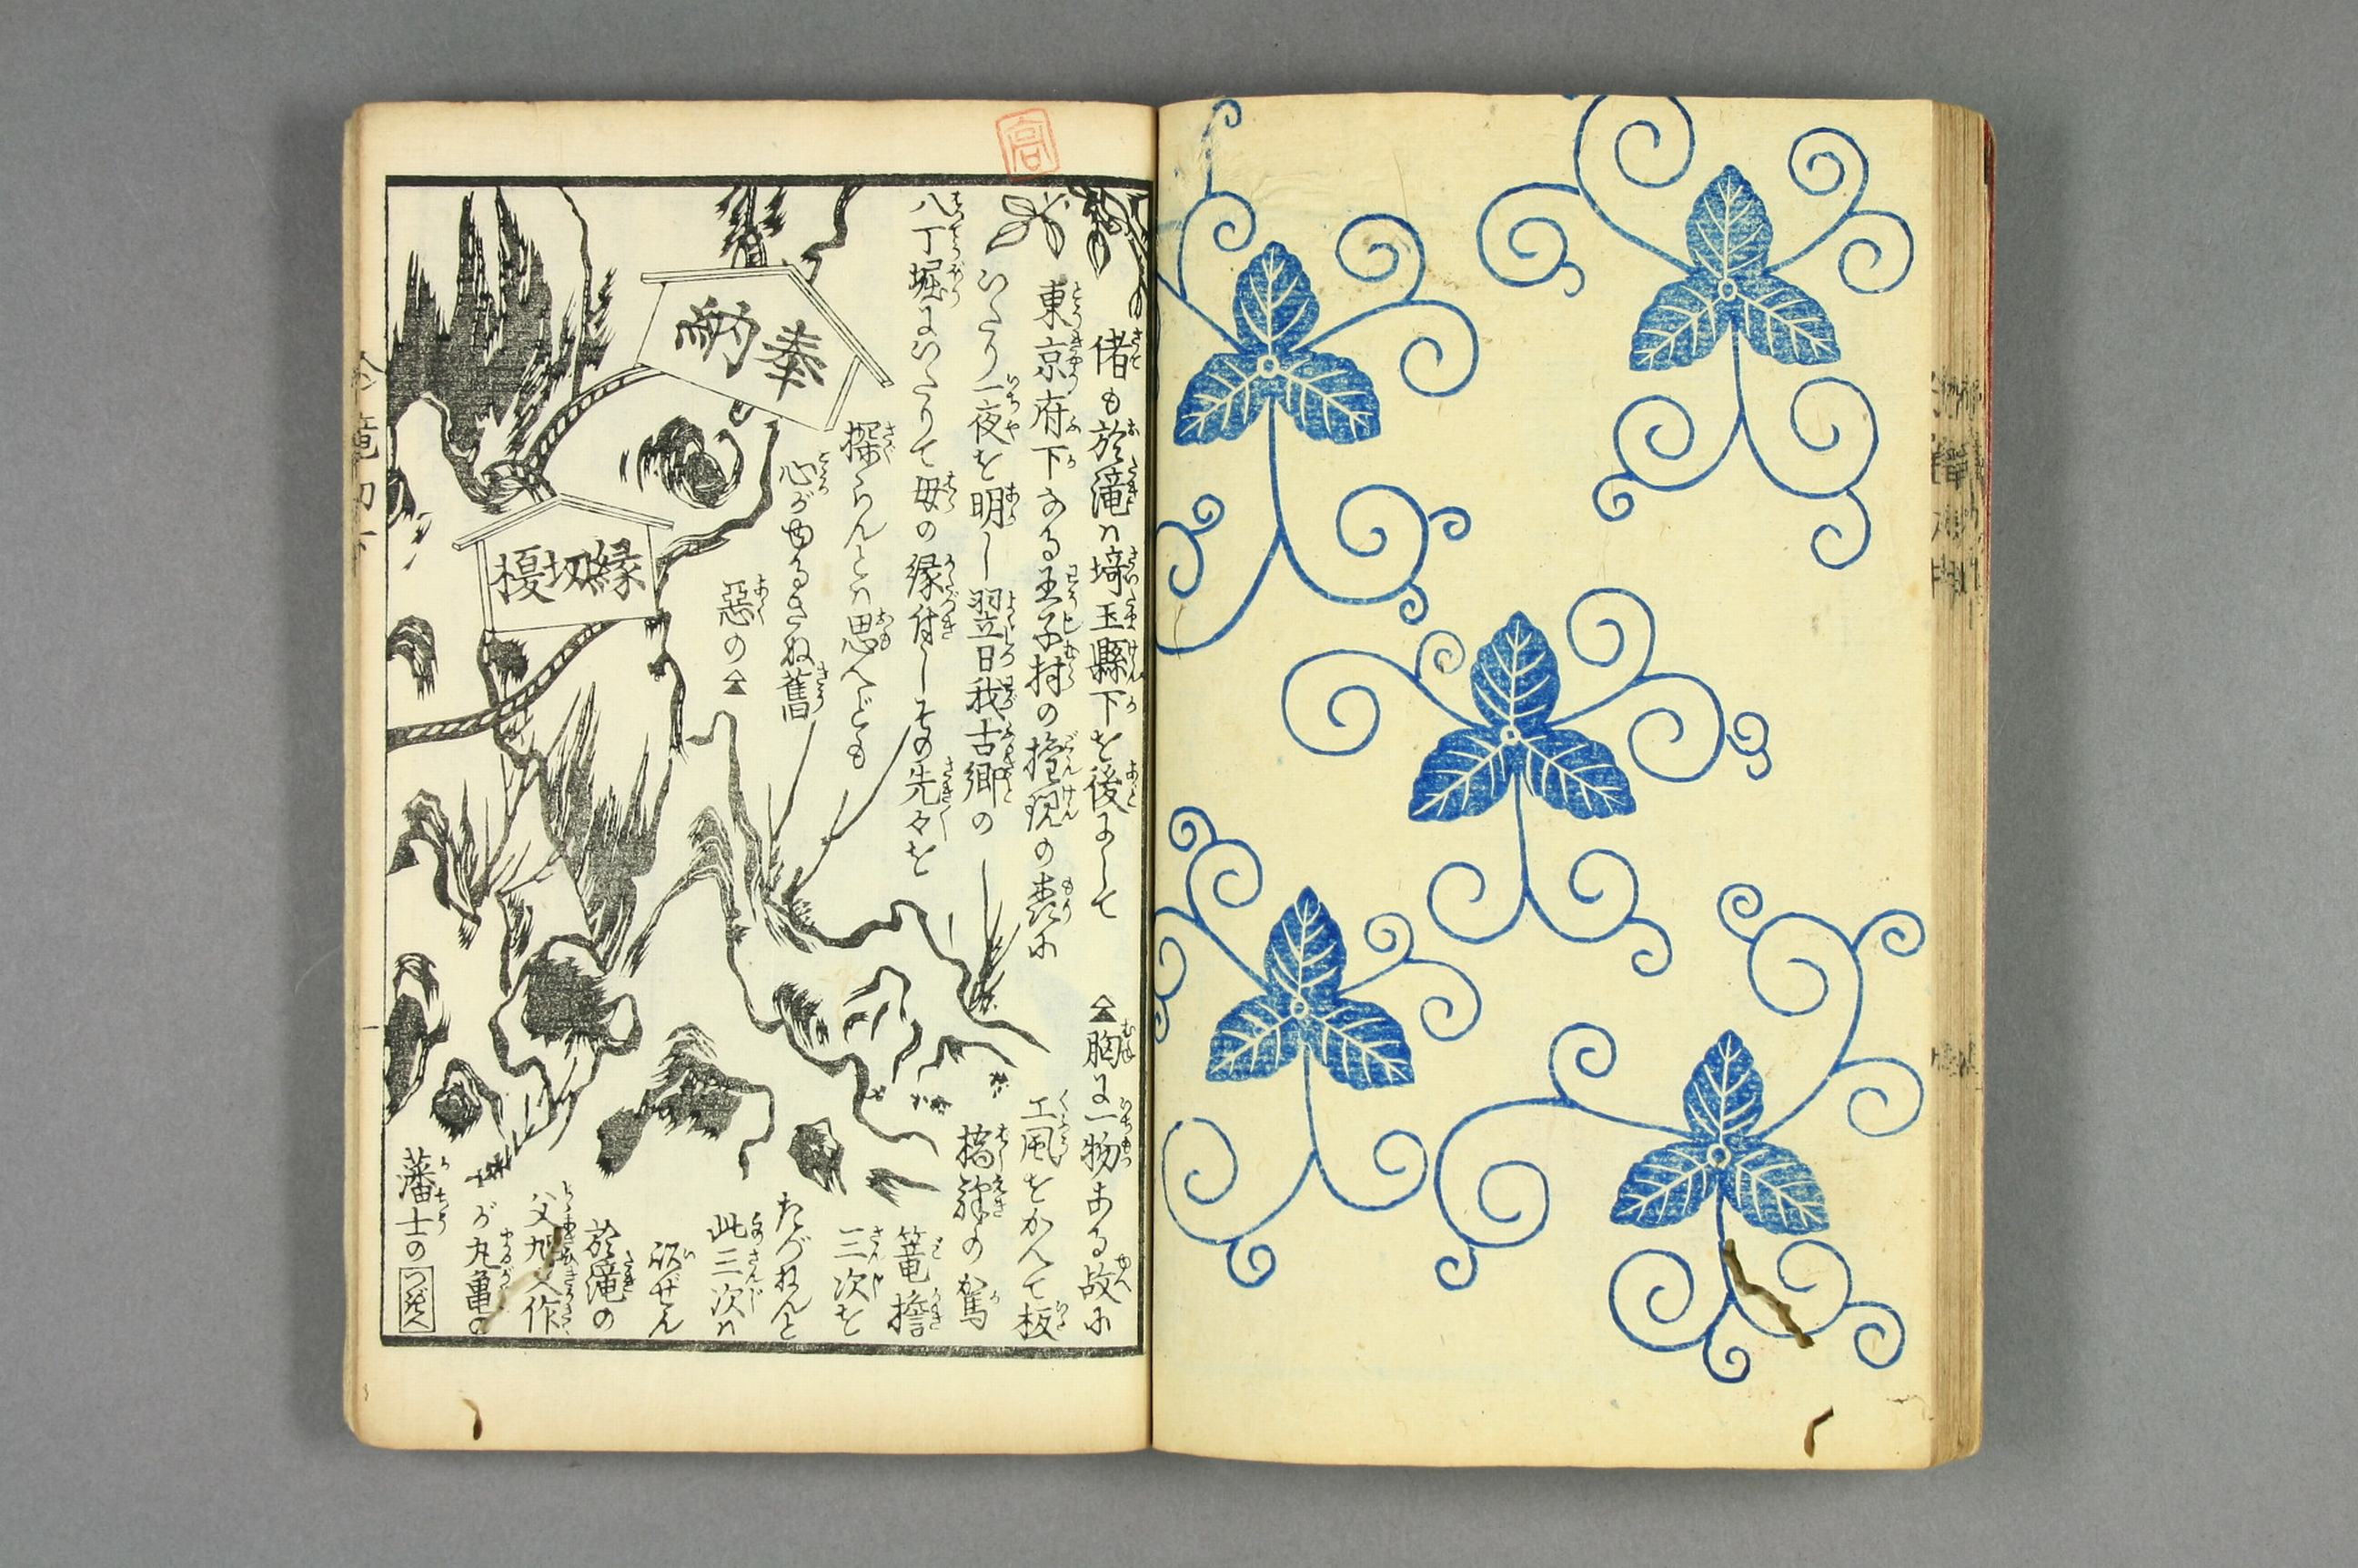 偖も於滝ハ埼玉縣下を後にして
東京府下なる王子村の権現の森に
いたり一夜を明し翌日我古郷の
八丁堀にいたりて母の縁付しその先々を
探らんとハ思へども
心がゆるさぬ舊
惡の▲
▲胸に一物ある故に
工風をかんて板
橋驛の駕
篭擔
三次を
たづねんと
此三次ハ
以ぜん
於滝の
父旭
作
が丸亀の
藩士の
つゞきへ
奉納
縁切榎